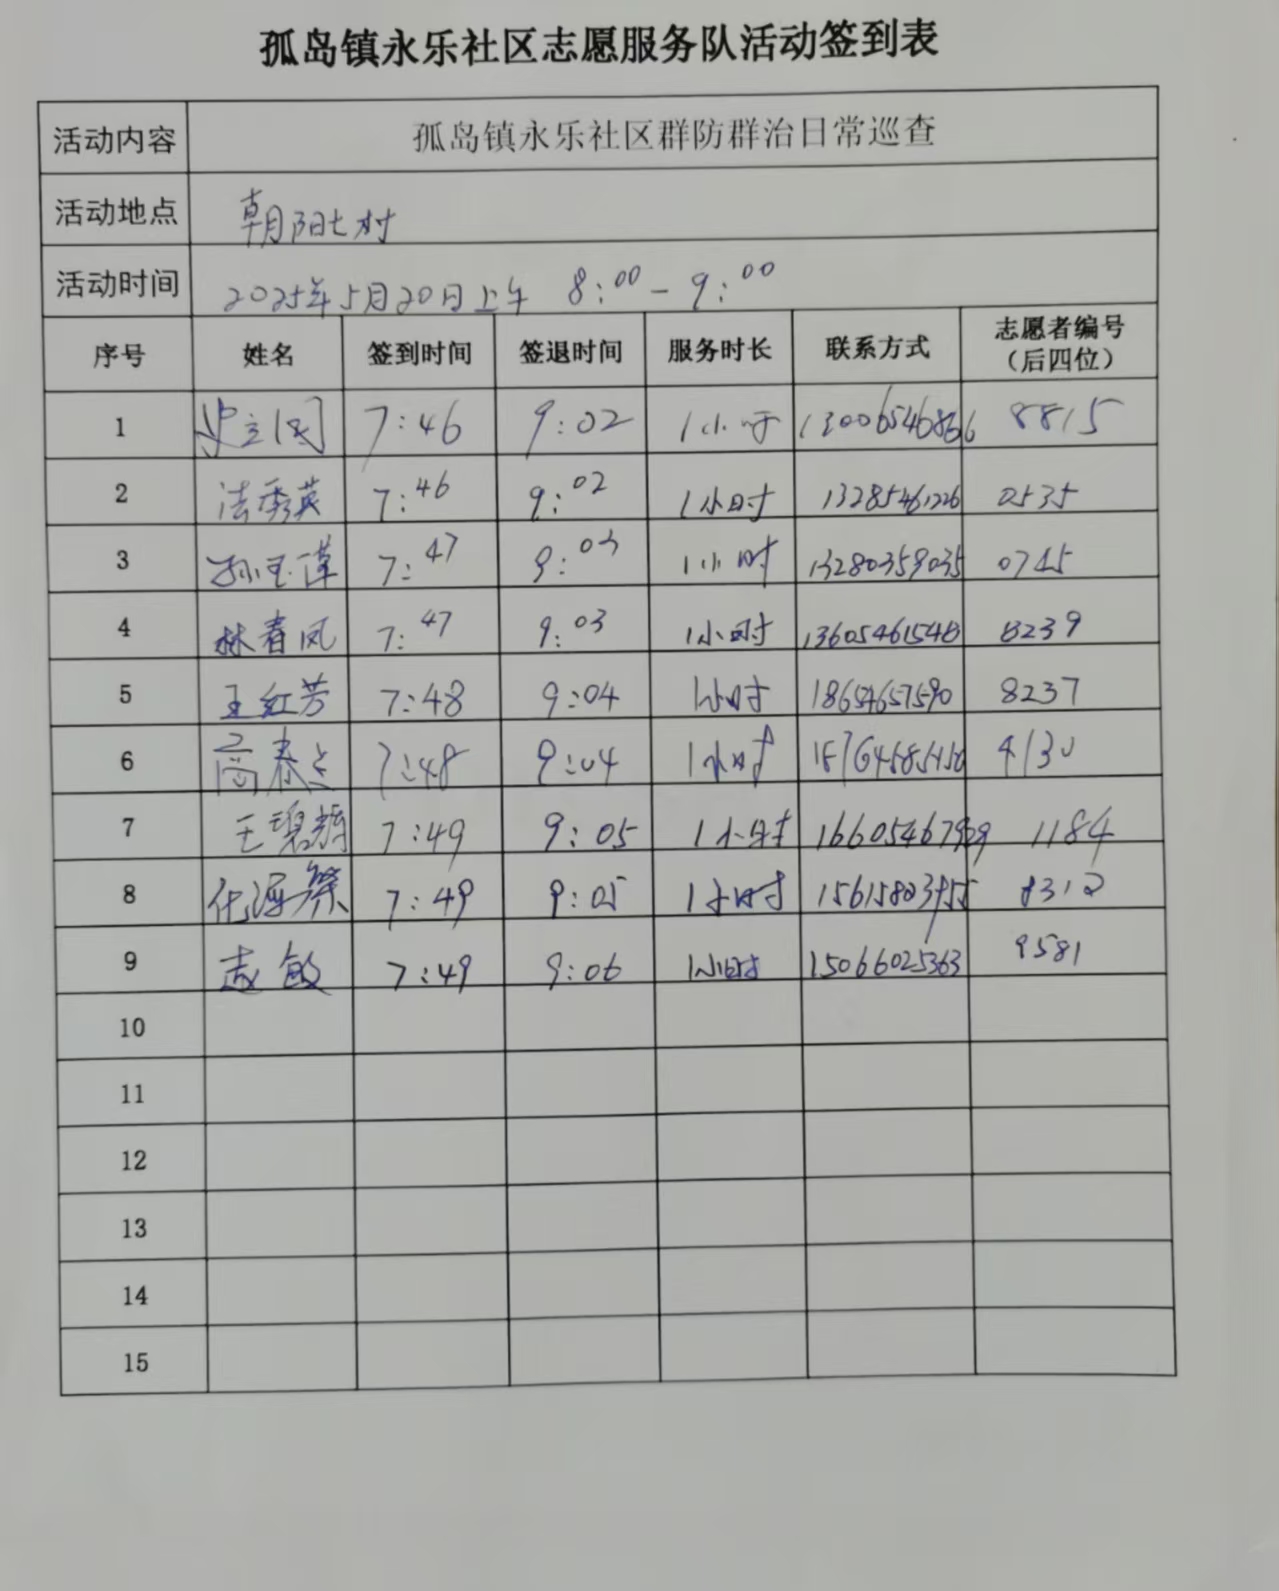 孤岛镇永乐社区志愿服务队活动签到表
活动内容 孤岛镇永乐社区群防群治日常巡查
活动地点 朝阳七村
活动时间 2025年5月20日上午 8:00-9:00
序号 姓名 签到时间 签退时间 服务时长 联系方式 志愿者编号（后四位）
1 史立国 7:46 9:02 1小时 8815
2 法秀英 7:46 9:02 1小时 13285461226 0535
3 7:47 9:03 1小时 13280359035 0745
4 林春凤 7:47 9:03 1小时 13605461548 8239
5 王红芳 7:48 9:04 1小时 18654657590 8237
6 7:48 9:04 1小时 4130
7 王碧辉 7:49 9:05 1小时 1184
8 7:49 9:05 1小时
9 赵敏 7:49 9:06 1小时 15066025363 9581
10
11
12
13
14
15